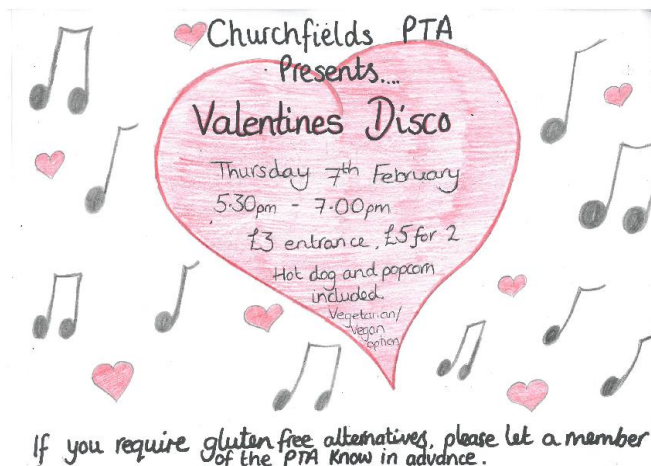 Churchfields PTA
Presents....
Valentines Disco
Thursday 7th February
5.30pm - 7.00pm
£3 entrance, £5 for 2
Hot dog and popcorn
included.
Vegetarian/
Vegan
option
If you require gluten free alternatives, please let a member
of the PTA know in advance.